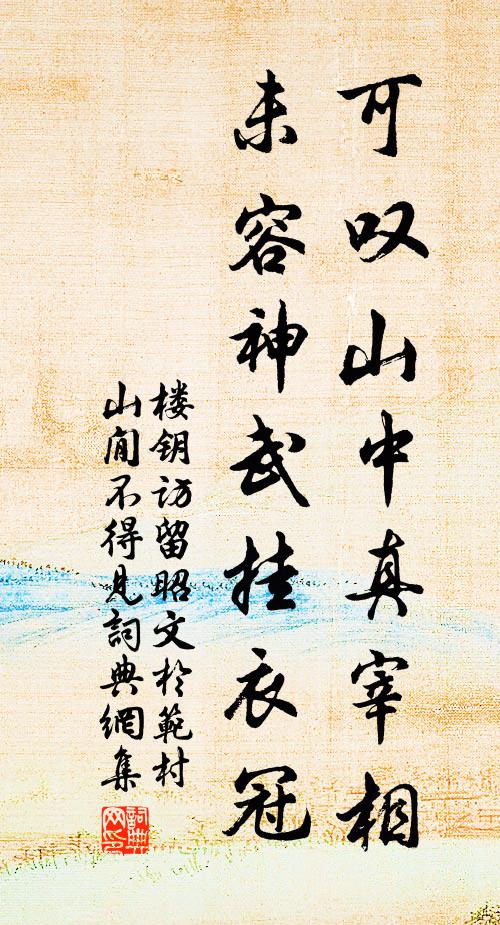 可叹山中真宰相
未容神武挂衣冠
楼钥访留昭文於範村
山间不得见詞典網集
詞典網印